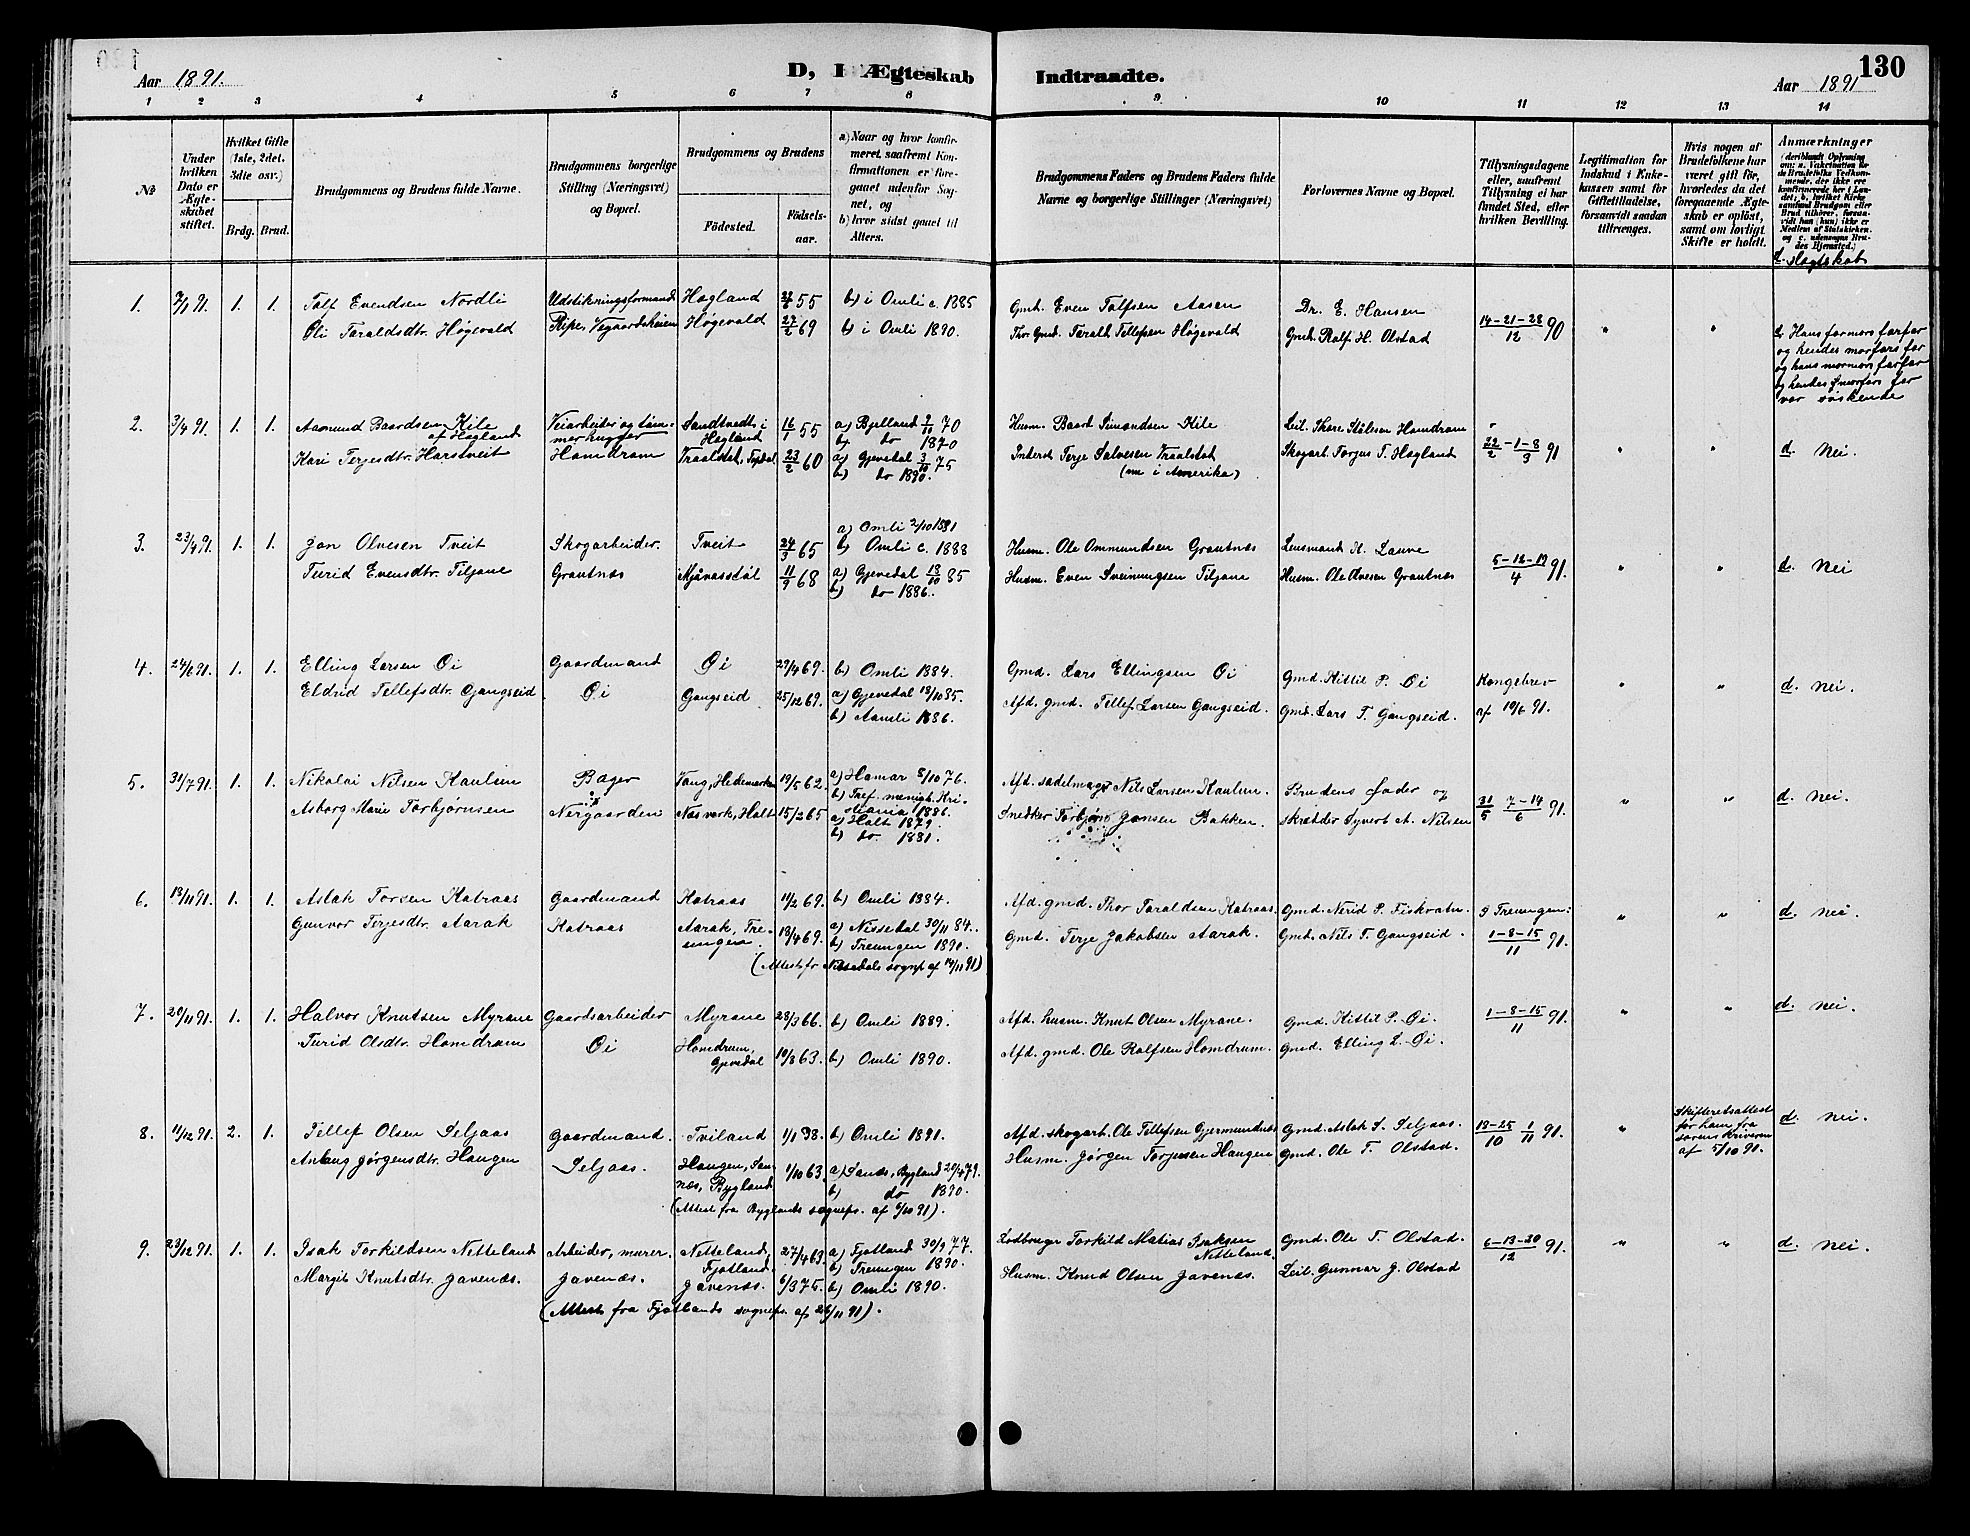 130
Aar 1891.
D, I Ægteskab Indtraadte.
Aar 1891
1 2 3 4 5 6 7 8 9 10 11 12 13 14
№
Under hvilken Dato er Ægteskabet stiftet.
Hvilket Gifte (1ste, 2det, 3die osv.)
Brdg. Brud.
Brudgommens og Brudens fulde Navne.
Brudgommens borgerlige Stilling (Næringsvei) og Bopæl.
Brudgommens og Brudens
Födested. Födselsaar.
a) Naar og hvor konfirmeret, saafremt Konfirmationen er foregaaet udenfor Sognet, og
b) hvor sidst gaaet til Alters.
Brudgommens Faders og Brudens Faders fulde Navne og borgerlige Stillinger (Næringsvei)
Forlovernes Navne og Bopæl.
Tillysningsdagene eller, saafremt Tillysning ei har fundet Sted, efter hvilken Bevilling.
Legitimation for Indskud i Enkekassen samt for Giftetilladelse, forsaavidt saadan tiltrænges.
Hvis nogen af Brudefolkene har været gift för, hvorledes da det foregaaende Ægteskab er oplöst, samt om lovligt Skifte er holdt.
Anmærkninger
d. Slægtskab
1. 2/1 91. 1. 1. Tolf Evendsen Nordli Udstikningsformand Hagland 55 b) i Omli c. 1885 Gmd. Even Tolfsen Aasen Dr. E. Hansen
Oli Taraldsdtr. Høgevald Ripe, Vegaardsheien Høgevald 27/2 69 b) i Omli 1890. Gmd. Tarald Tellefsen Høgevald Gmd. Rolf H. Olstad 14-21-28/12 90 " "
d. Hans formors farfar
og hendes morfars far
og hans mormors farfar
og hendes farfar far
var söskende
2. 3/4 91. 1. 1. Aasmund Baardsen Kile af Hagland Veiarbeider og tömmerhugger Sandtvedt i Hagland 16/1 55 a) Bjelland 2/10 70 b) do 1870 Husm. Baard Simondsen Kile Leil. Skare Stölesen Homdram
Kari Terjesdtr. Harstveit Homdram Vraalstad, Tovdal 23/2 60 a) Gjevedal 3/10 75 b) do 1890. Inderst Terje Salvesen Vraalstad (nu i Amerika) Skogarb. Torgus T. Hagland 22/2 -1-8/3 91 " " d. Nei.
3. 23/4 91. 1. 1. Jon Olvesen Tveit Skogarbeider. Tveit 24/3 65 a) Omli 2/10 1881 b) Omli c. 1888 Husm. Ole Ommundsen Grautnæs Lensmand H. Lauve
Turid Evensdtr. Tiljane Grautnæs Mjaavasstöl 11/9 68 a) Gjevedal 18/10 85 b) do 1886. Husm. Even Sveinungsen Tiljane Husm. Ole Olvesen Grautnæs 5-12-19/4 91. " " d. Nei
4. 24/6 91. 1. 1. Elling Larsen Øi Gaardmand Øi 29/4 69. b) Omli 1884. Gmd. Lars Ellingsen Øi Gmd. Kittil P. Øi Kongebrev
Eldrid Tellefsdtr. Gjangseid. Øi Gangseid 25/12 69. a) Gjevedal 18/10 85. b) Aamli 1886. Afd. gmd. Tellef Larsen Gangseid. Gmd. Lars T. Gangseid. af 19/6 91. " " d. Nei.
5. 31/7 91. 1. 1. Nikolai Nilsen Kaulum Bager Vang, Hedemarken 19/5 62. a) Hamar 8/10 76. b) Tref. menigh. Kristiania 1886. Afd. sadelmager Nils Larsen Kaulum. Brudens fader og
Asborg Marie Torbjørnsen Nergaarden Næs verk, Holt 15/2 65 a) Holt 1879. b) do. 1881. Snedker Torbjörn Jansen Bakken. skrædder Syvert A. Nilsen 31/5 7-14/6 91. " " d. Nei.
6. 13/11 91. 1. 1. Aslak Torsen Katraas Gaardmand Katraas 11/2 69. b) Omli 1884. Afd. gmd. Thor Taraldsen Katraas. Gmd. Nerid P. Fiskvatn. I Treungen:
Gunvor Terjesdtr. Aarak Katraas Aarak, Treungen. 18/4 69. a) Nissedal 30/11 84. b) Treungen 1890. Gmd. Terje Jakobsen Aarak. Gmd. Nils T. Gangseid. 1-8-15/11 91. " " d. Nei.
(Attest fr Nissedals sognep. af 14/11 91)
7. 20/11 91. 1. 1. Halvor Knutsen Myrane Gaardsarbeider Myrane 28/3 66. b) Omli 1889. Afd. husm. Knut Olsen Myrane. Gmd. Kittil P. Øi. 1-8-15/11 91. " " d. Nei.
Turid Olsdtr. Homdram Øi Homdrum, Gjevedal 19/8 63. b) Omli 1890. Afd. gmd. Ole Rolfsen Homdrum. Gmd. Elling L. Øi.
8. 11/12 91. 2. 1. Tellef Olsen Seljaas Gaardmand. Tviland 1/1 38. b) Omli 1891. Afd. skogarb. Ole Tellefsen Gjermundnæs Gmd. Aslak S. Seljaas. 18-25/10 1/11 91. " Skifteretsattest for ham fra sorenskriveren af 5/10 91. d. Nei.
Anlaug Jørgensdtr. Haugen Seljaas. Haugen, Sandnæs, Bygland 1/10 63. a) Sandn., Bygland 20/4 79. b) do 1890. Husm. Jørgen Torjusen Haugen Gmd. Ole T. Olstad.
(Attest fra Byglands sognep. af 6/10 91).
9. 23/12 91. 1. 1. Isak Torkildsen Netteland Arbeider, murer. Netteland, Fjotland 27/4 63. a) Fjotland 30/9 77. b) Treungen 1890. Lodbruger Torkild Matias Isaksen Netteland. Gmd. Ole T. Olstad. 6-13-20/12 91. " " d. Nei.
Margit Knutsdtr. Javenæs. Javenæs. Javenæs. 6/3 75. b) Omli 1890. Husm. Knud Olsen Javenæs. Leil. Gunnar J. Olstad
(Attest fra Fjotlands sognep. af 26/11 91).